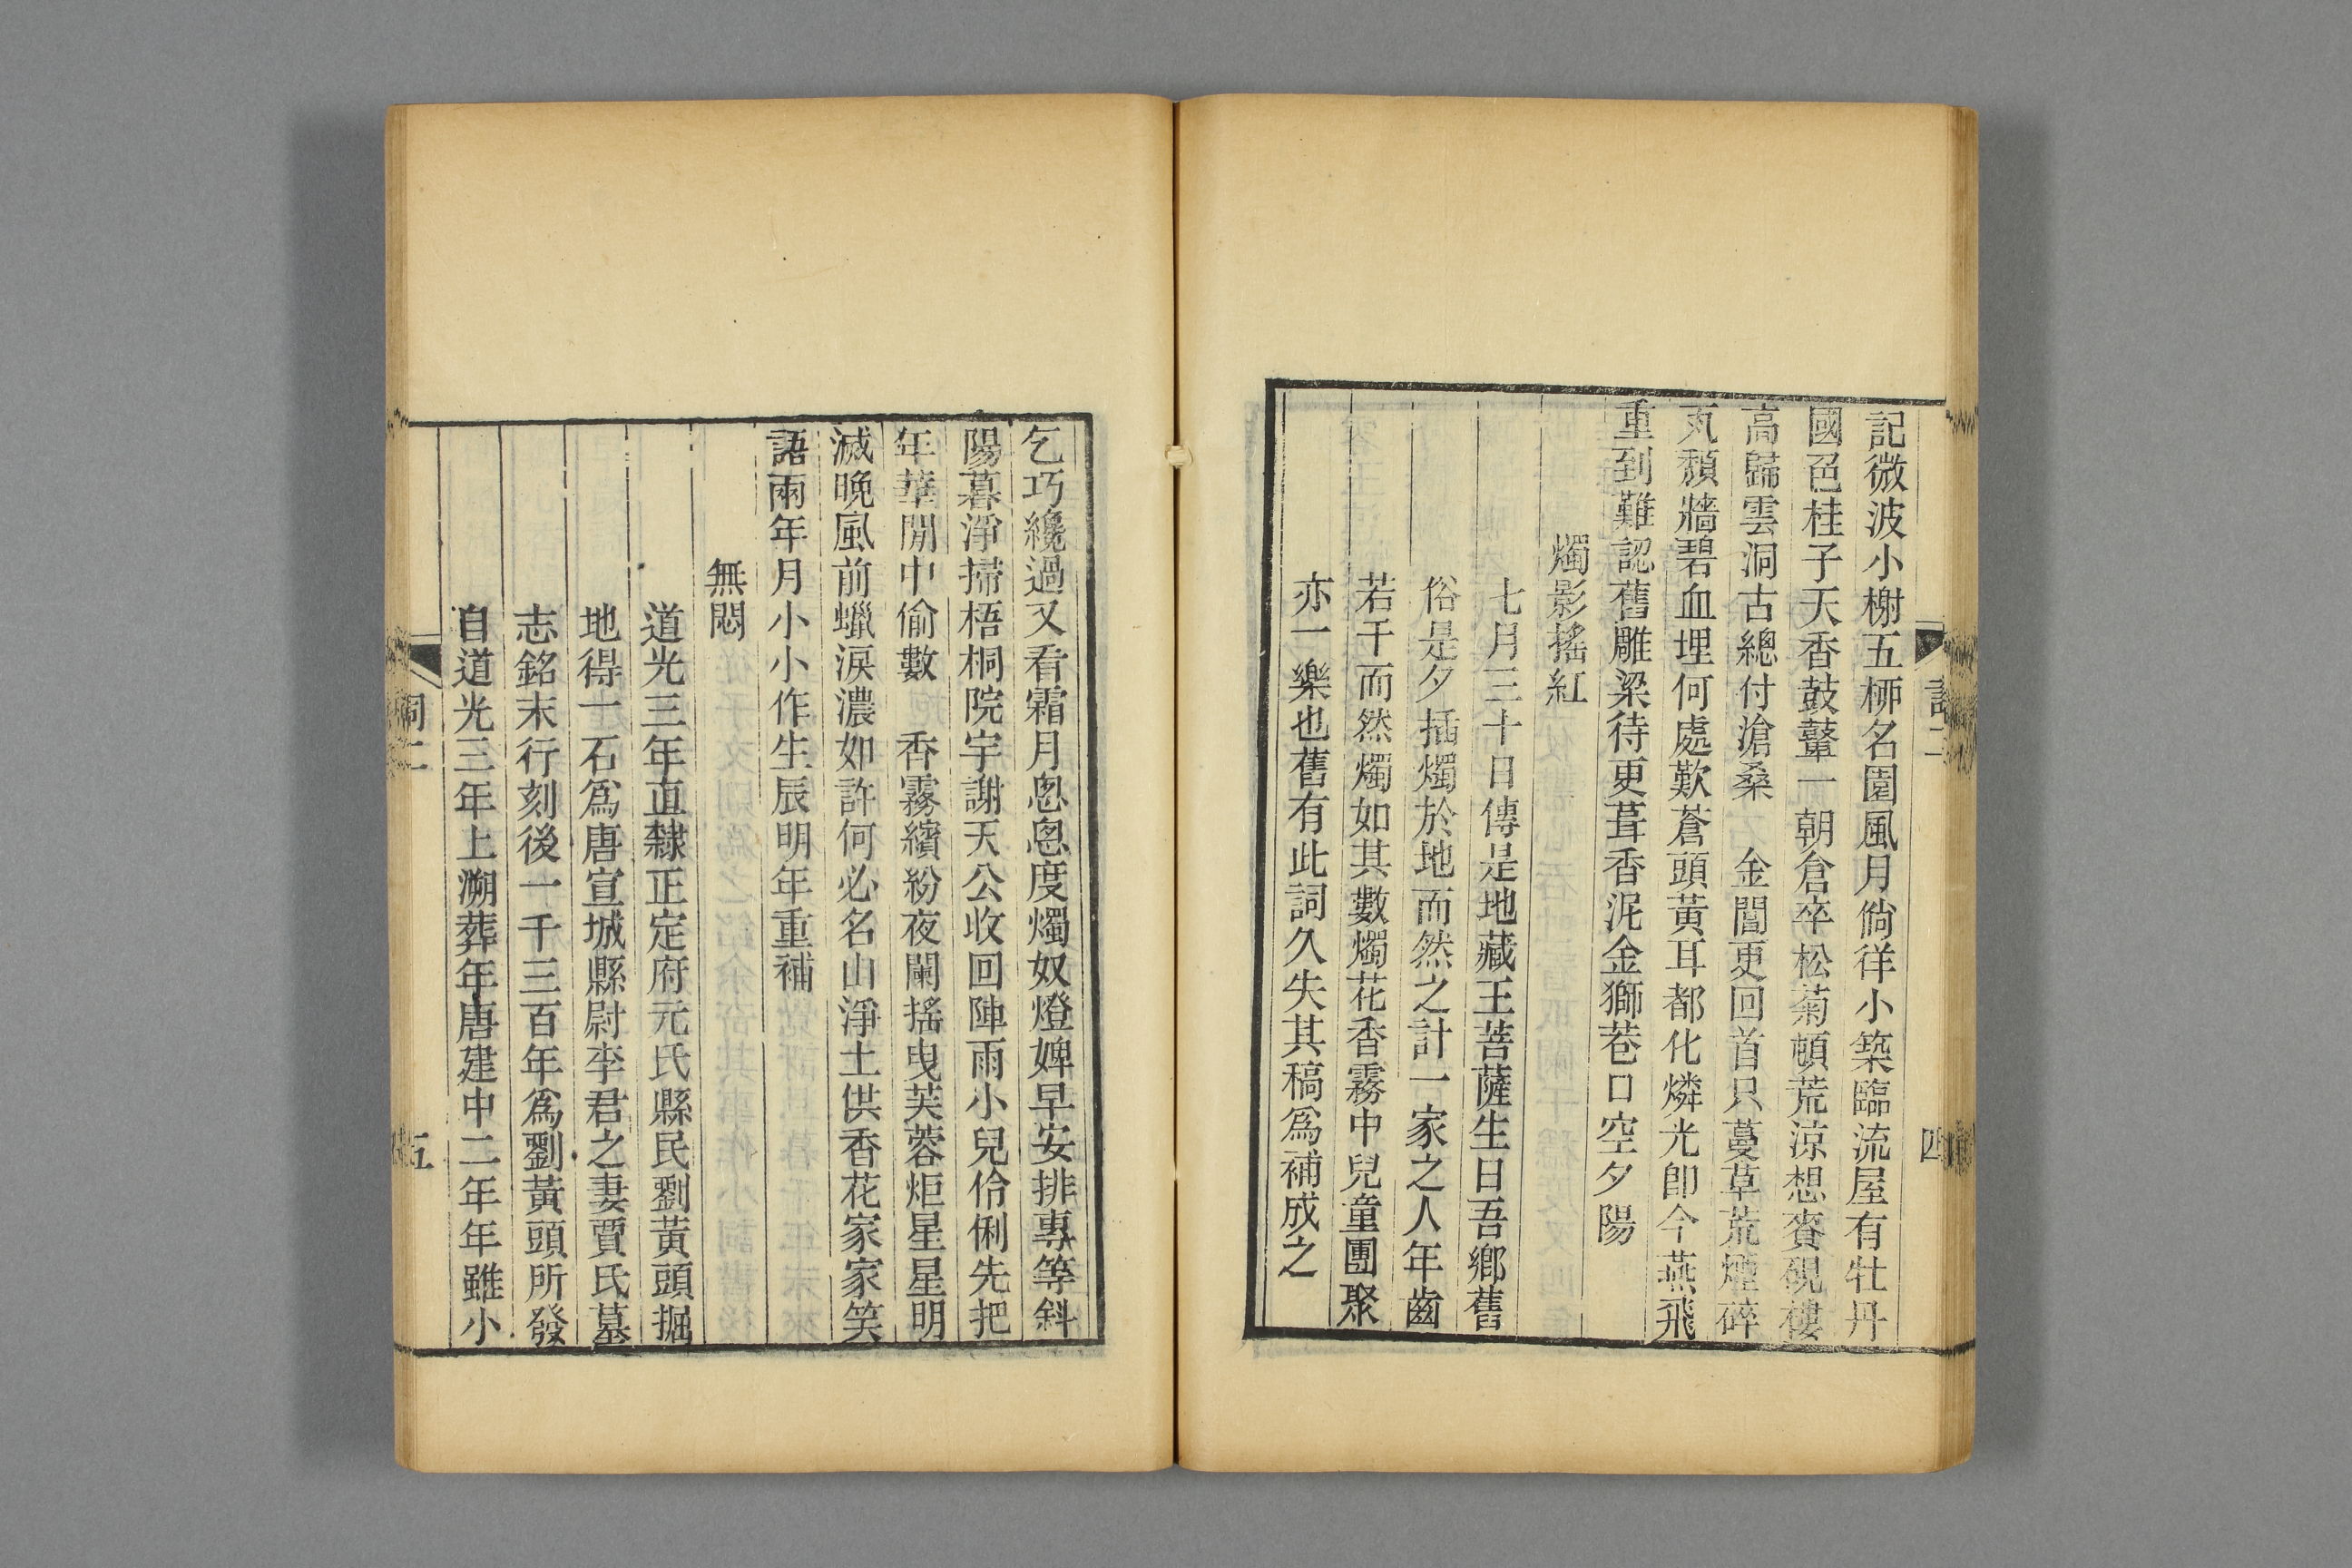 記微波小榭五桺名園風月徜徉小築臨流屋有牡丹
國色桂子天香鼓鼙一朝倉卒松菊頓荒涼想賚硯樓
高歸雲洞古總付滄桑　金閶更回首只蔓草荒煙碎
瓦頹牆碧血埋何處歎蒼頭黃耳都化燐光卽今燕飛
重到難認舊雕梁待更葺香泥金獅巷口空夕陽
燭影搖紅
七月三十日傳是地藏王菩薩生日吾鄉舊
俗是夕插燭於地而然之計一家之人年齒
若干而然燭如其數燭花香霧中兒童團聚
亦一樂也舊有此詞久失其稿爲補成之
四
乞巧纔過又看霜月悤悤度燭奴燈婢早安排專等斜
陽暮淨掃梧桐院宇謝天公收回陣雨小兒伶俐先把
年華閒中偷數　香霧繽紛夜闌搖曳芙蓉炬星星明
滅晚風前蠟淚濃如許何必名山淨土供香花家家笑
語兩年月小小作生辰明年重補
無悶
道光三年直隸正定府元氏縣民劉黃頭掘
地得一石爲唐宣城縣尉李君之妻賈氏墓
志銘末行刻後一千三百年爲劉黃頭所發
自道光三年上溯葬年唐建中二年年雖小
詞二
五